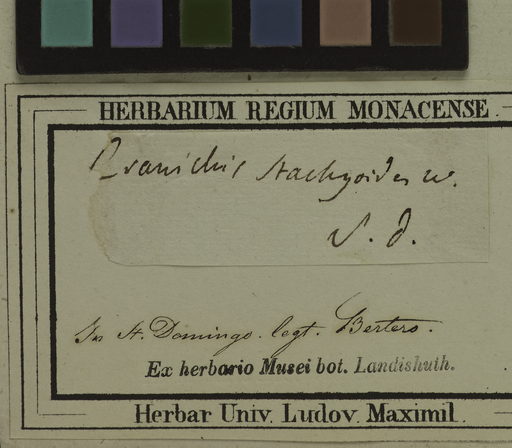 HERBARIUM REGIUM MONACENSE.
Cranichis stachyoides w.
S. d.
In St. Domingo. legt. Bertero.
Ex herbario Musei bot. Landishuth.
Herbar Univ. Ludov. Maximil.